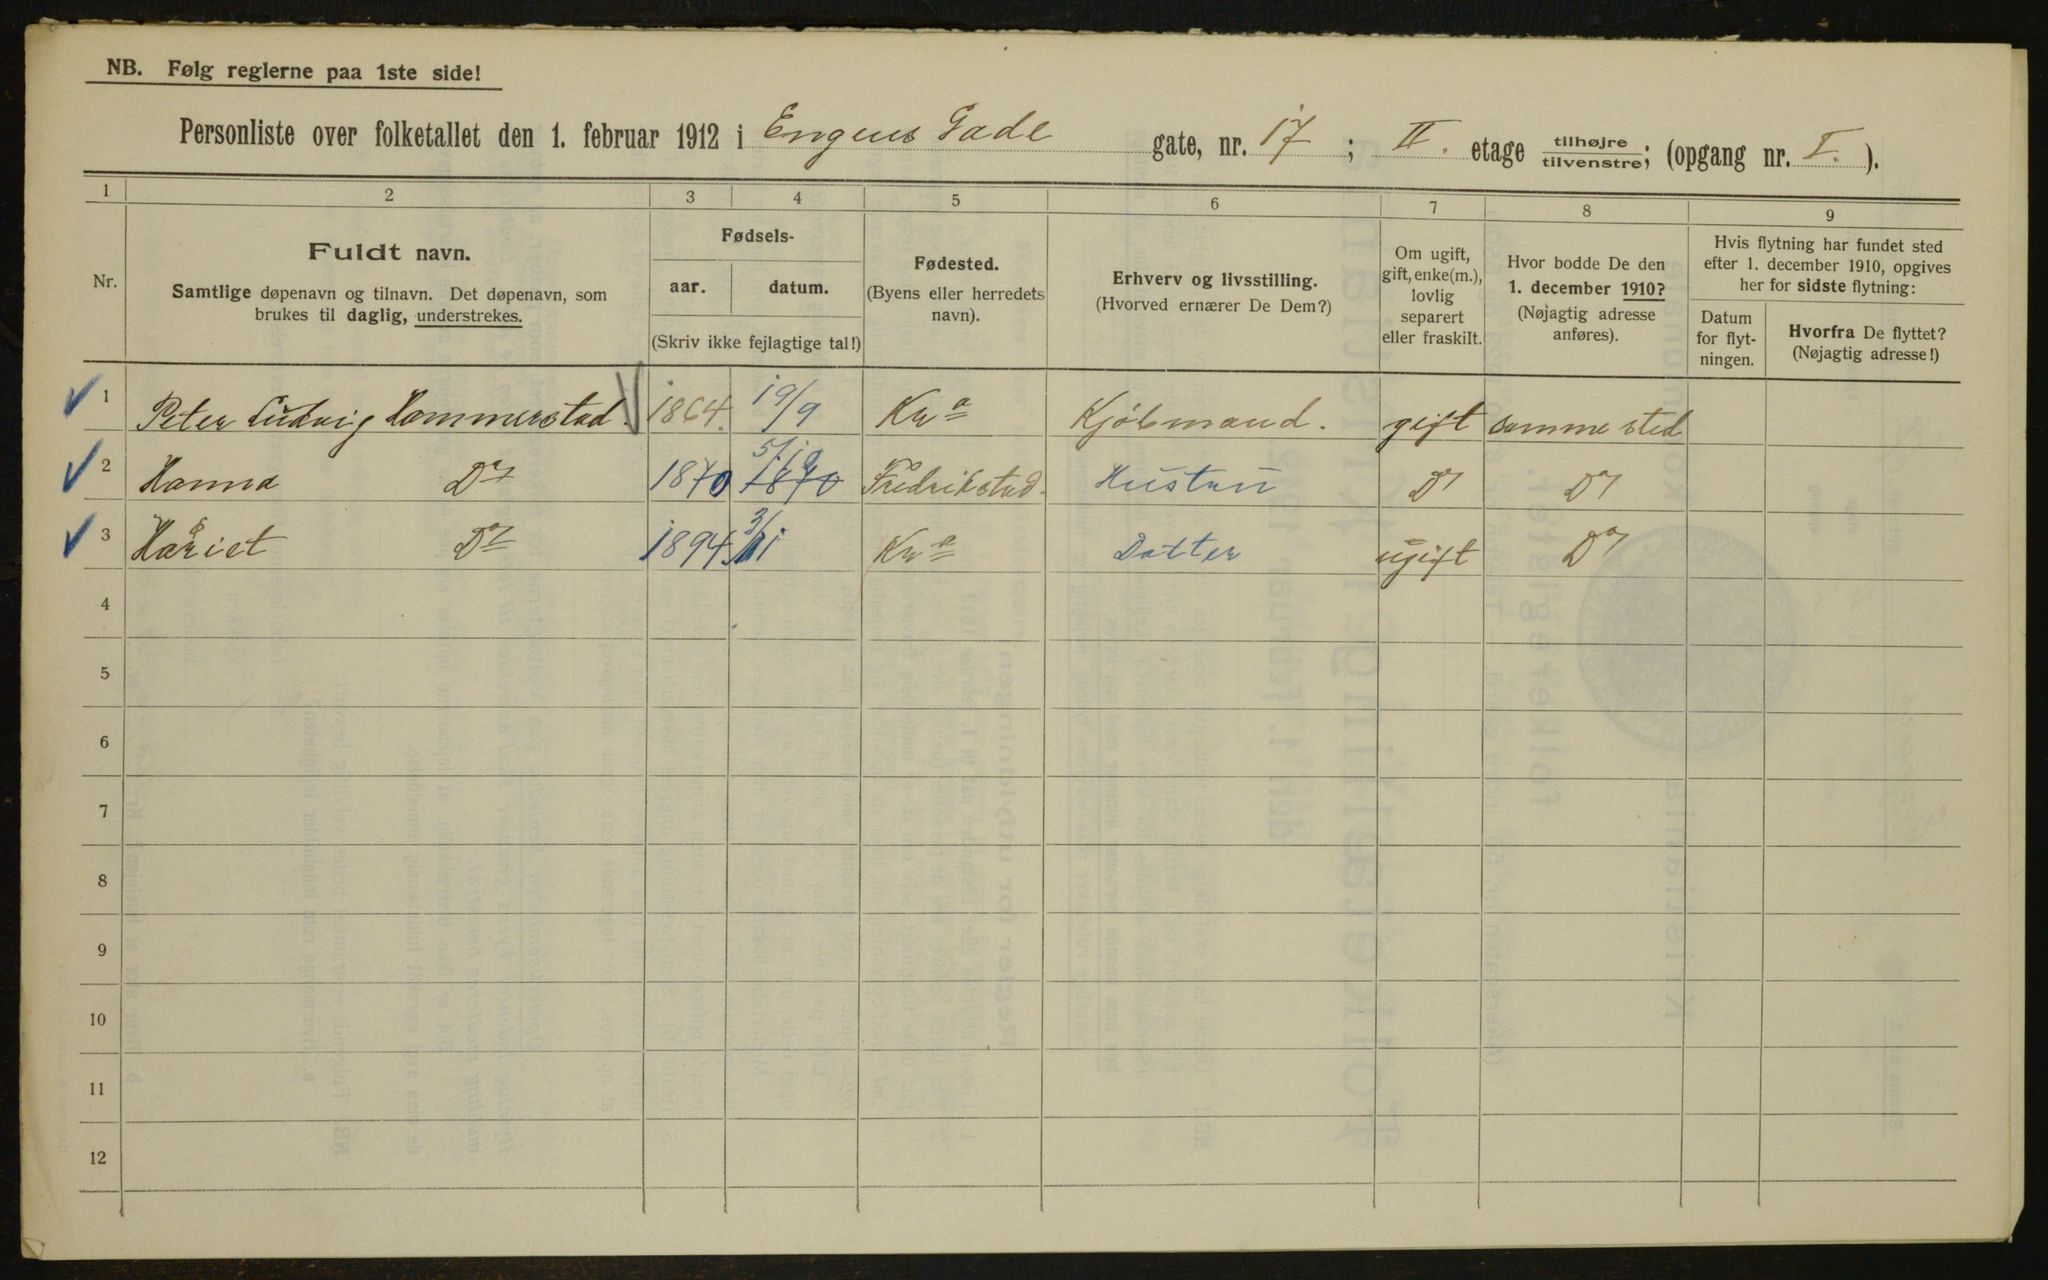 NB. Følg reglerne paa 1ste side!
Personliste over folketallet den 1. februar 1912 i Engens Gade gate, nr. 17 ; II. etage tilhøjre tilvenstre; (opgang nr. I. ).
1 2 3 4 5 6 7 8 9
Nr.
Fuldt navn.
Samtlige døpenavn og tilnavn. Det døpenavn, som
brukes til daglig, understrekes.
Fødsels-
aar. datum.
(Skriv ikke fejlagtige tal!)
Fødested.
(Byens eller herredets
navn).
Erhverv og livsstilling.
(Hvorved ernærer De Dem?)
Om ugift,
gift, enke(m.),
lovlig
separert
eller fraskilt.
Hvor bodde De den
1. december 1910?
(Nøjagtig adresse
anføres).
Hvis flytning har fundet sted
efter 1. december 1910, opgives
her for sidste flytning:
Datum
for flyt-
ningen.
Hvorfra De flyttet?
(Nøjagtig adresse!)
1 Peter Ludvig Hammerstad. 1864. 19/9 Kra Kjöbmand. gift samme sted
2 Hanna Do 1870 5/10 1870 Fredrikstad. Hustru Do Do
3 Harriet Do 1894. 3/1 Kra Datter ugift Do
4
5
6
7
8
9
10
11
12